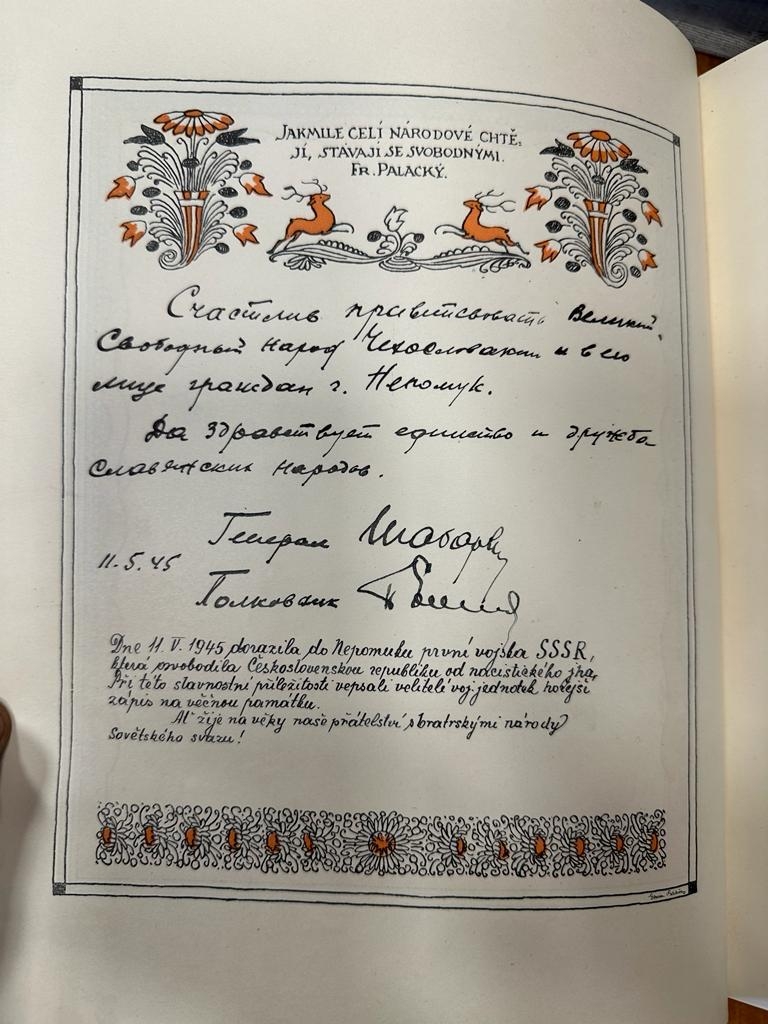 JAKMILE CELÍ NÁRODOVÉ CHTĚ,
JÍ, STÁVAJÍ SE SVOBODNÝMI.
FR. PALACKÝ.
Счастлив приветсвовать Великий,
Свободный народ Чехословакии и в его
лице граждан г. Непомук.
Да здравствует единство и дружба
славянских народов.
Генерал
11.5.45
Полковник
Dne 11. V. 1945 dorazila do Nepomuku první vojska SSSR,
která osvobodila Československou republiku od nacistického jha.
Při této slavnostní příležitosti vepsali velitelé voj. jednotek hořejší
zápis na věčnou památku.
Ať žije na věky naše přátelství s bratrskými národy
Sovětského svazu!